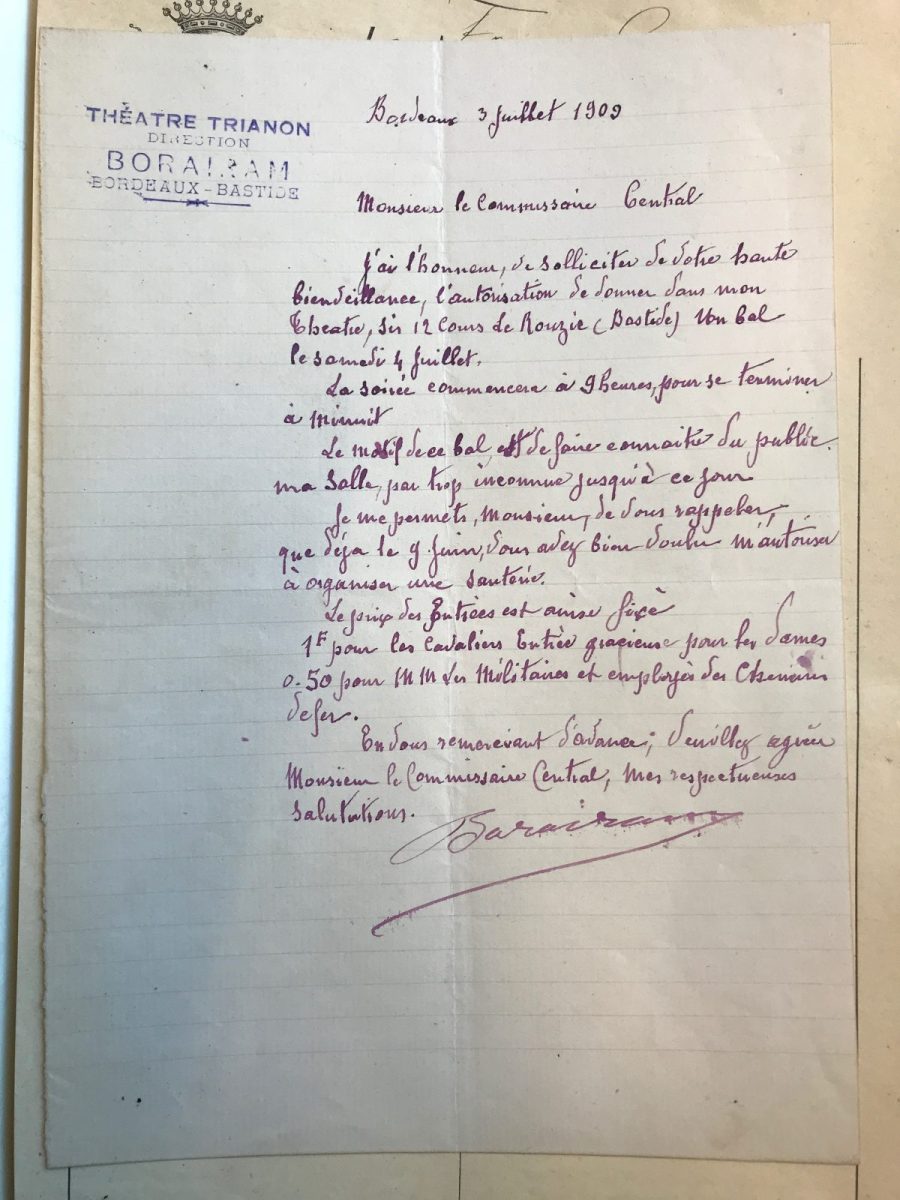 THÉATRE TRIANON
DIRECTION
BORAIRAM
BORDEAUX-BASTIDE
Bordeaux 3 Juillet 1909
Monsieur le Commissaire Central
J'ai l'honneur, de solliciter de votre haute
bienveillance, l'autorisation de donner dans mon
Théatre, sis 12 Cours Le Rouzic (Bastide) Un bal
le samedi 4 Juillet.
La soirée commencera à 9 heures, pour se terminer
à Minuit
Le motif de ce bal, est de faire connaitre du public
ma Salle, par trop inconnue jusqu'à ce jour
Je me permets, Monsieur, de vous rappeler,
que déja le 9 Juin, vous avez bien voulu m'autoriser
à organiser une sauterie.
Le prix des Entrées est ainse fixé
1F pour les Cavaliers Entrée gracieuse pour les dames
0.50 pour MM Les Militaires et employés des Chemins
de fer.
En vous remerciant d'avance; veuillez agréer
Monsieur le Commissaire Central, Mes respectueuses
Salutations.
Borairam